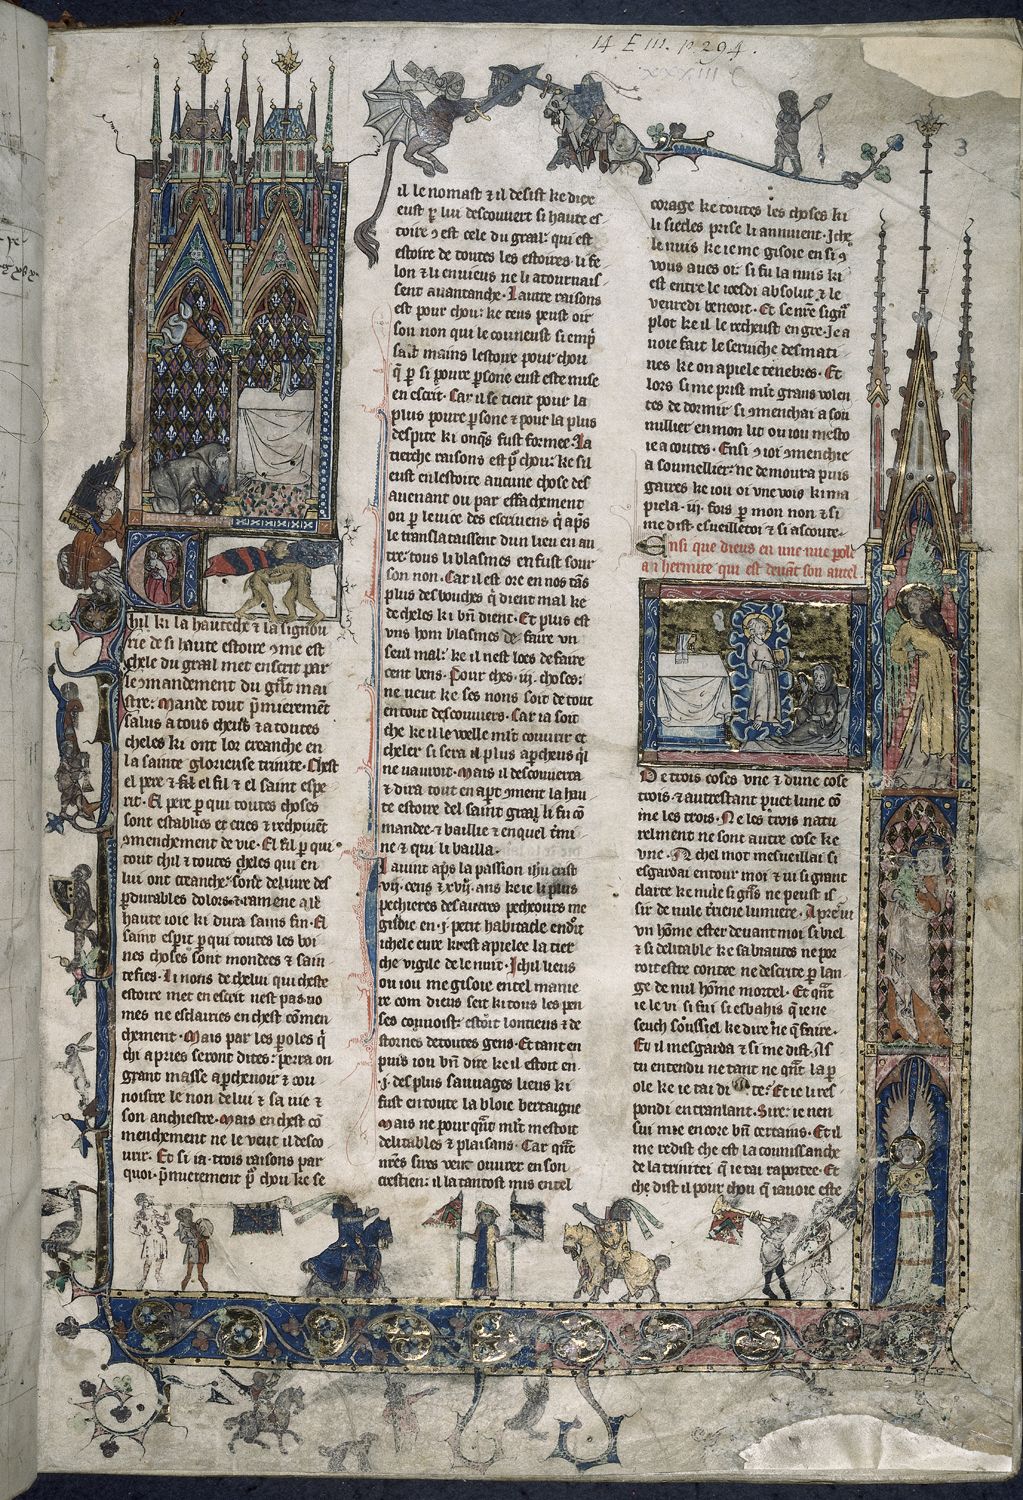 14 E III. p. 294.
XXXIII
3
Chil ki la hauteche & la signou
rie de si haute estoire 9me est
chele du graal met en escrit par
le 9mandement du gñt mai
stre: Mande tout pmierement
salus a tous cheus & a toutes
cheles ki ont lor creanche en
la sainte glorieuse trinite. Chest
el pere & el fil & el saint espe
rit. El pere p qui toutes choses
sont establies & cries & rechoiuent
9menchement de vie. El fil p qui
tout chil & toutes cheles qui en
lui ont creanche sont deliure des
pdurables dolors & ramene a le
haute ioie ki dura sans fin. El
saint esperit p qui toutes les boi
nes choses sont mondees & sain
tefies. Li nons de chelui qui cheste
estoire met en escrit nest pas no
mes ne esclairies en chest comen
chement. Mais par les poles q
chi apries seront dites: porra on
grant masse apchenoir & cou
noistre le non de lui & sa vie &
son anchiestre. Mais en chest co
menchement ne le veut il desco
urir. Et si ia trois raisons par
quoi. pmierement p chou ke se
il le nomast & il desist ke diex
eust p lui descouuert si haute es
toire 9 est cele du graal qui est
estoire de toutes les estoires li fe
lon & li enuieus ne li atournais
sent a uantanche. Lautre raisons
est pour chou: ke teus peust oir
son non qui le couneust si emp
sast mains lestoire pour chou
q p si poure psone eust este mise
en escrit. Car il se tient pour la
plus poure psone & pour la plus
despite ki onqs fust formee. La
tierche raisons est p chou: ke sil
eust en lestoire aucune chose des
auenant ou par effachement
on p le uice des escriuens q aps
le translataissent dun lieu en au
tre: tous li blasmes en fust sour
son non. Car il est ore en nos tas
plus de bouches q dient mal ke
de cheles ki bñ dient. Et plus est
vns hom blasmes de faire vn
seul mal: ke il nest loes de faire
cent bens. Pour ches .iij. choses:
ne ueut ke ses nons soit de tout
en tout descouuers. Car ia soit
che ke il le voelle mlt couurir et
cheler si sera il plus apcheus ql
ne vauroit. Mais il descouuerra
& dira tout en aprt 9ment la hau
te estoire del saint graal li fu co
mandee & baillie & en quel tmi
ne & qui li bailla.
Il auint aps la passion ihu crist
.vij. cens & xvij. ans ke ie li plus
pechieres des autres pecheours me
gisoie en .j. petit habitacle endt
ichele eure ki est apielee la tier
che vigile de le nuit. Ichil lieus
ou iou me gisoie en tel manie
re com dieus seit ki tous les pen
ses connoist: estoit lontiens & de
stornes de toutes gens. Et tant en
puis iou bñ dire ke il estoit en
.j. des plus sauuages lieus ki
fust en toute la bloie bertaigne
Mais ne pour qnt mlt mestoit
delitables & plaisans. Car qnt
nres sires veut ouurer en son
crestien: il la tantost mis en tel
corage ke toutes les choses ki
li siecles prise li anuient. Iche
le nuis ke ie me gisoie ensi 9
vous aues oi: si fu la nuis ki
est entre le ioesdi absolut & le
venredi beneoit. Et se nre sign
plot ke il le recheust en gre. Ie a
uoie fait le seruiche des mati
nes ke on apiele tenebres. Et
lors si me prist mlt grans volen
tes de dormir si 9menchai a son
millier en mon lit ou iou mesto
ie acoutes. Ensi 9 ioi 9menchie
a soumellier: ne demoura puis
gaires ke iou oi vne vois ki ma
piela .iij. fois p mon non & si
me dist. esueilletoi & si ascoute.
Ensi que dieus en une nue polt
a .j. hermite qui est deuant son autel
De trois coses vne & dune cose
trois. & autrestant puet lune co
me les trois. Ne les trois natu
relment ne sont autre cose ke
vne. A chel mot mesueillai si
esgardai entour moi & vi si grant
clarte ke nule si gñs ne peust is
sir de nule triene lumiere. Apre ui
vn home ester deuant moi si biel
& si delitable ke sa biautes ne por
roit estre contee ne descrite p lan
ge de nul home mortel. Et qnt
ie le vi si fui si esbahis q ie ne
seuch sous siel ke dire ne q faire.
Et il mesgarda & si me dist. As
tu entendu ne tant ne qnt la p
ole ke ie tai dite: Et ie li res
pondi en tranlant. Sire: ie nen
sui mie encore bñ certains. Et il
me redist che est la counissanche
de la trinitei q ie tai raportee. Et
che dist il pour chou q iauoie este